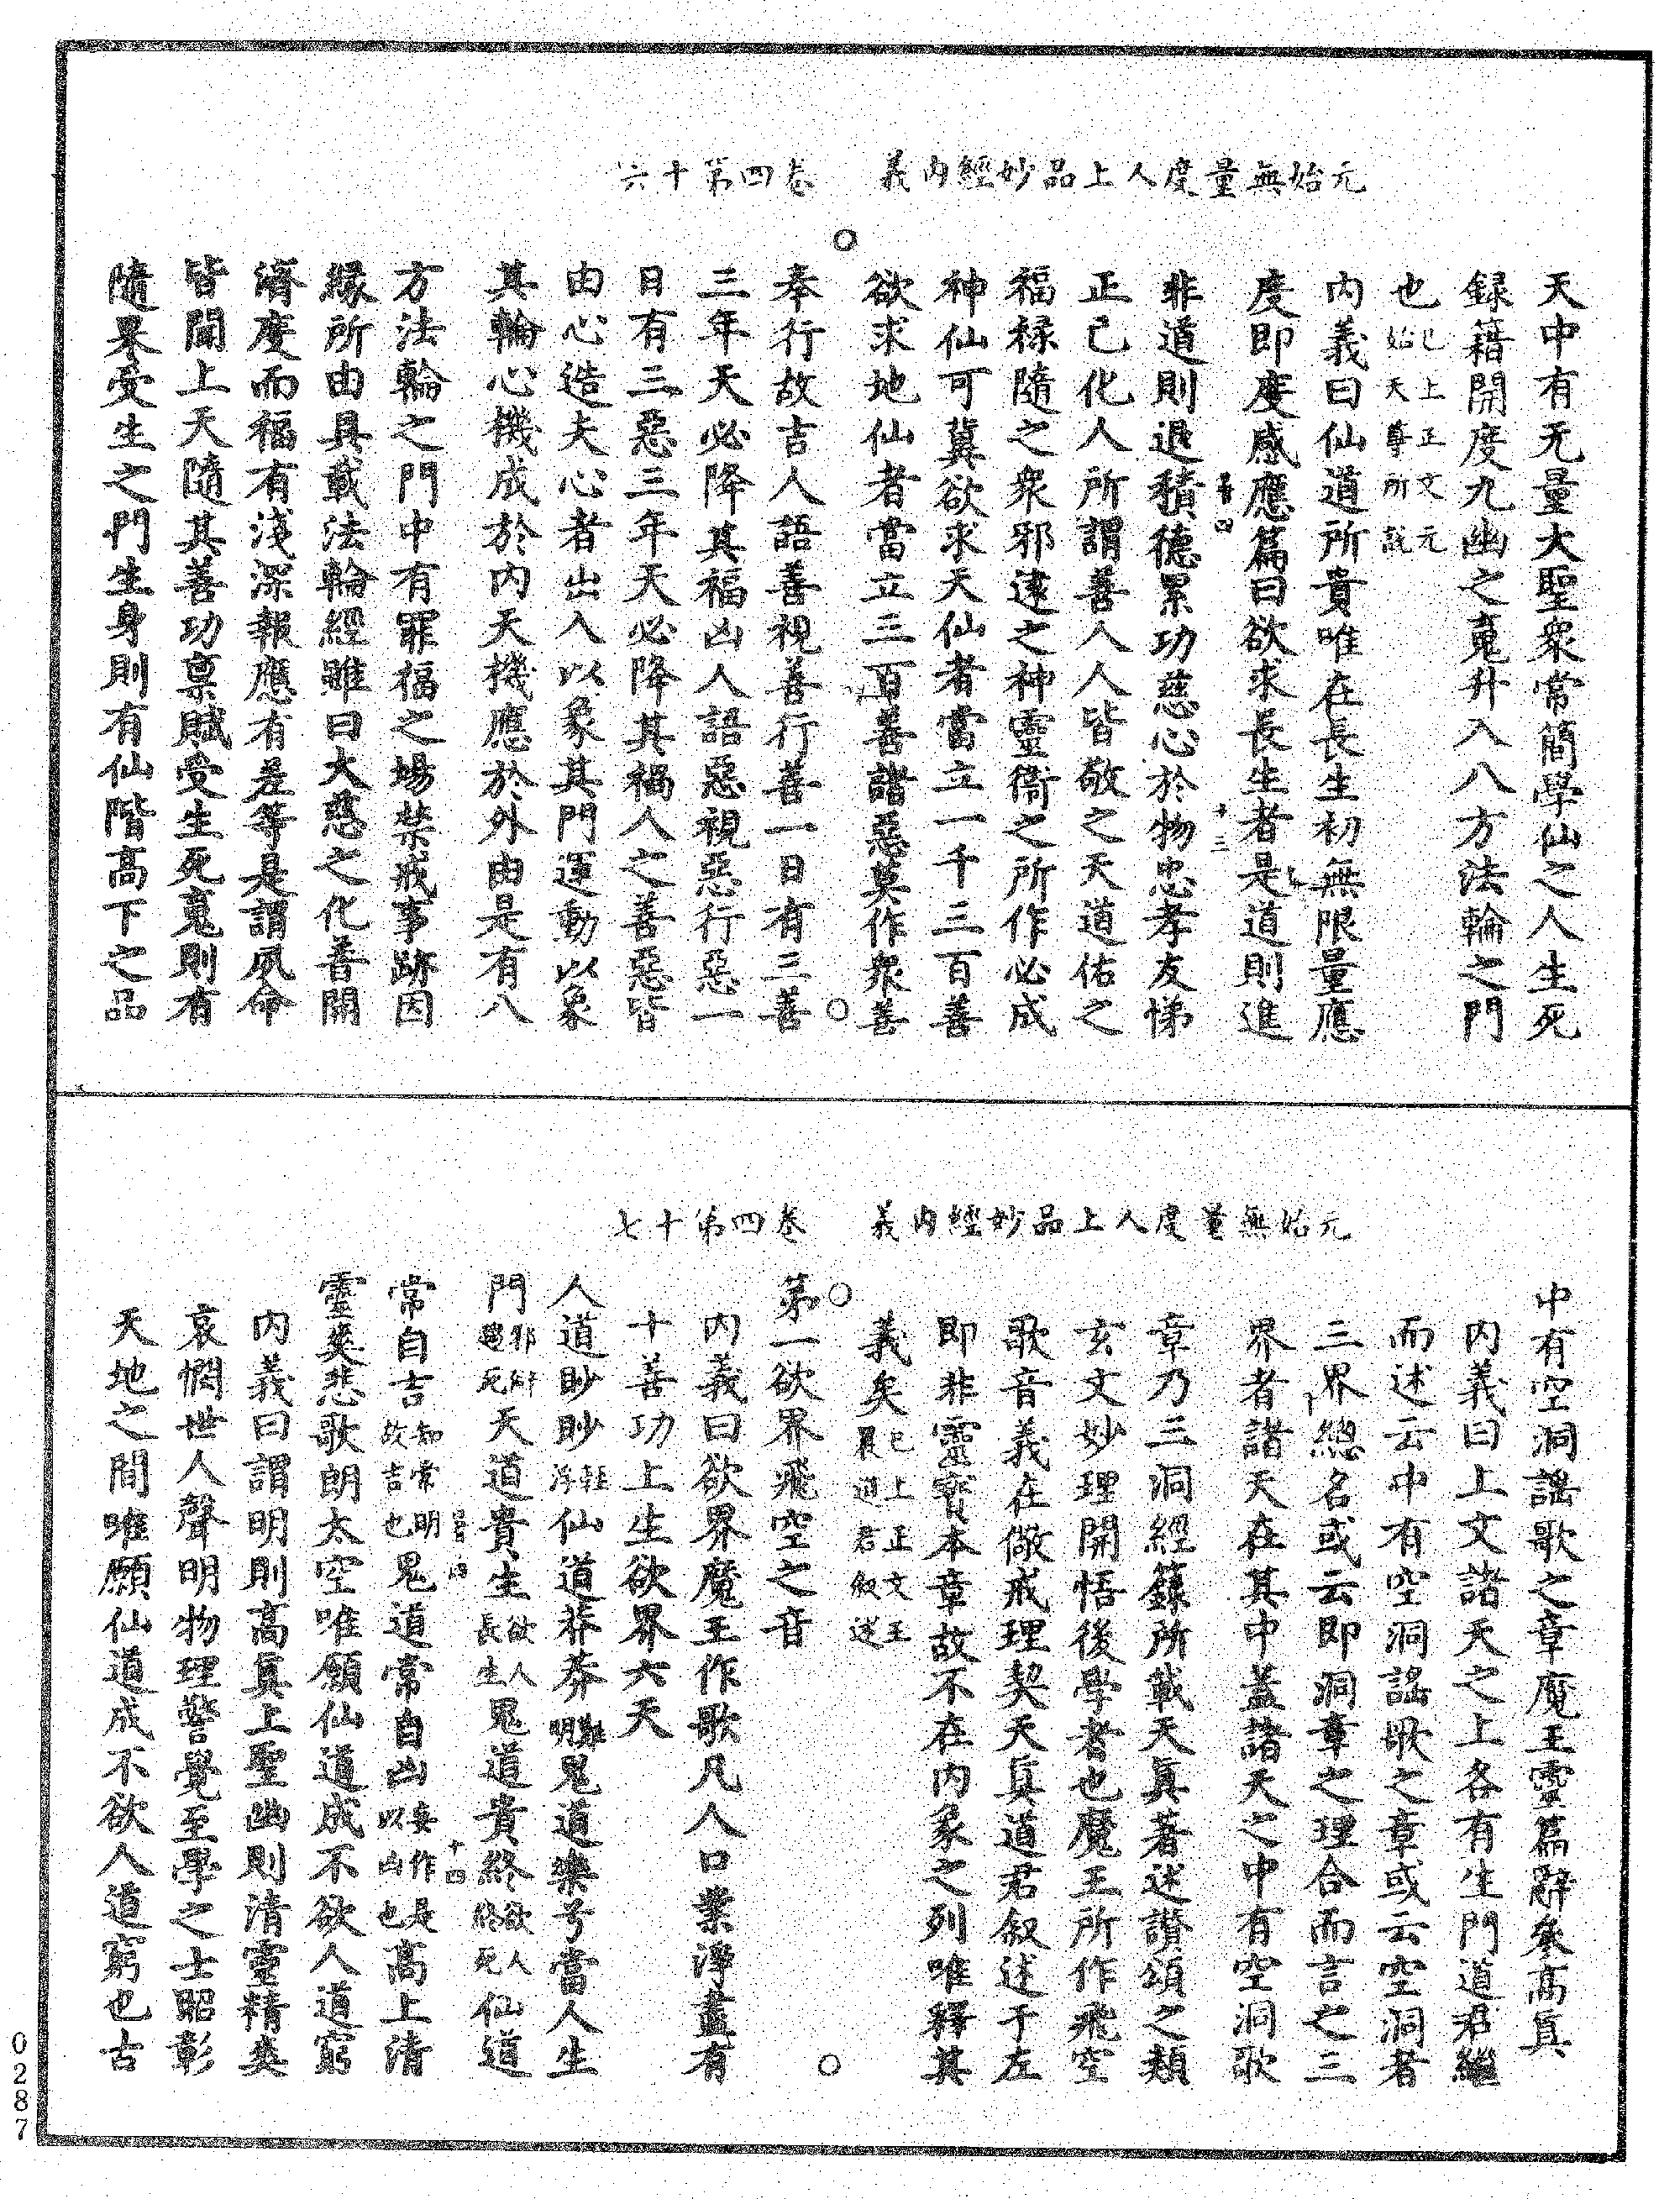 元始無量度人上品妙經內義　卷四第十六
天中有无量大聖眾常簡學仙之人生死
録籍開度九幽之䰟升入八方法輪之門
也已上正文元始天尊所說
内義曰仙道所貴唯在長生初無限量應
度即度感應篇曰欲求長生者是道則進
寒四　十三
非道則退積德累功慈心於物忠孝友悌
正己化人所謂善人人皆敬之天道佑之
福禄隨之眾邪遠之神靈衛之所作必成
神仙可冀欲求天仙者當立一千三百善
欲求地仙者當立三百善諸惡莫作眾善
奉行故吉人語善視善行善一日有三善
三年天必降其福凶人語惡視惡行惡一
日有三惡三年天必降其禍人之善惡皆
由心造夫心者出入以象其門運動以象
其輪心機成於内天機應於外由是有八
方法輪之門中有罪福之場禁戒事跡因
縁所由具載法輪經雖曰大慈之化普開
濟度而福有淺深報應有差等是謂夙命
皆開上天隨其善功稟賦受生死䰟則有
隨界受生之門生身則有仙階高下之品
元始無量度人上品妙經內義　卷四第十七
中有空洞謡歌之章魔王靈篇辭參髙真
内義曰上文諸天之上各有生門道君繼
而述云中有空洞謡歌之章或云空洞者
三界總名或云即洞章之理合而言之三
界者諸天在其中蓋諸天之中有空洞歌
章乃三洞經籙所載天真著述讃頌之類
玄文妙理開悟後學者也魔王所作飛空
歌音義在儆戒理契天真道君叙述于左
即非靈寳本章故不在内象之列唯釋其
義矣已上正文王晨道君叙述
第一欲界飛空之音
内義曰欲界魔王作歌凡人口業淨盡有
十善功上生欲界六天
人道眇眇輕浮仙道莽莽難明鬼道樂兮當人生
門邪辯趣死天道貴生欲人長生鬼道貴終欲人終死仙道
寒四　十四
常自吉知常明故吉也鬼道常自凶妄作是以凶也髙上清
靈爽悲歌朗太空唯願仙道成不欲人道窮
内義曰謂明則高真上聖幽則清靈精爽
哀憫世人聲明物理警覺至學之士昭彰
天地之間唯願仙道成不欲人道窮也古
0287